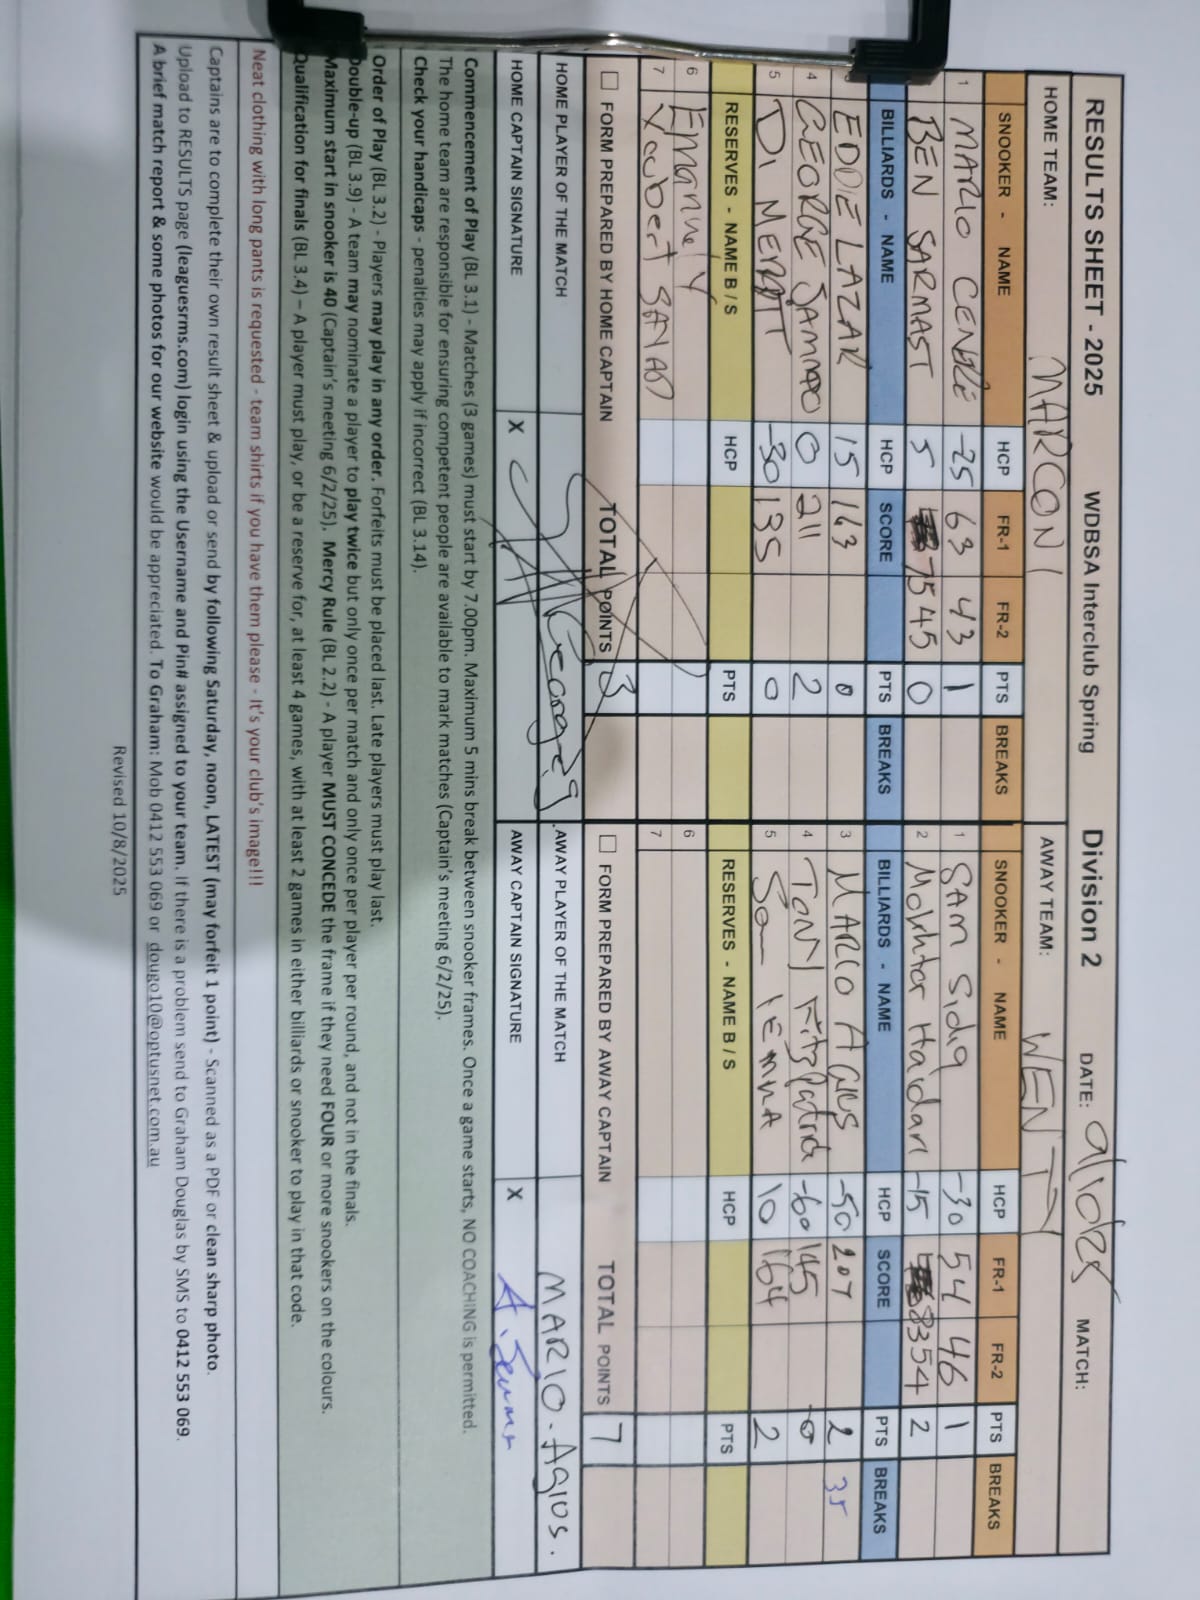 RESULTS SHEET - 2025 WDBSA Interclub Spring Division 2 DATE: MATCH:
HOME TEAM: MARCONI AWAY TEAM: WENTY
SNOOKER - NAME HCP FR-1 FR-2 PTS BREAKS SNOOKER - NAME HCP FR-1 FR-2 PTS BREAKS
1 MARIO -25 63 43 1 1 SAM Sidiq -30 54 46 1
2 BEN SARMAST 5 75 45 0 2 Mokhtar Haidari -15 83 54 2
BILLIARDS - NAME HCP SCORE PTS BREAKS BILLIARDS - NAME HCP SCORE PTS BREAKS
3 EDDIE LAZAR 15 163 0 3 MARIO AGIUS -50 207 2 35
4 GEORGE 0 211 2 4 TONY Fitzpatrick -60 145 0
5 DI -30 135 0 5 Sam 10 164 2
RESERVES - NAME B / S HCP PTS RESERVES - NAME B / S HCP PTS
6 6
7 7
FORM PREPARED BY HOME CAPTAIN TOTAL POINTS 3 FORM PREPARED BY AWAY CAPTAIN TOTAL POINTS 7
HOME PLAYER OF THE MATCH George S AWAY PLAYER OF THE MATCH MARIO - AGIUS.
HOME CAPTAIN SIGNATURE X AWAY CAPTAIN SIGNATURE X
Commencement of Play (BL 3.1) - Matches (3 games) must start by 7.00pm. Maximum 5 mins break between snooker frames. Once a game starts, NO COACHING is permitted.
The home team are responsible for ensuring competent people are available to mark matches (Captain's meeting 6/2/25).
Check your handicaps - penalties may apply if incorrect (BL 3.14).
Order of Play (BL 3.2) - Players may play in any order. Forfeits must be placed last. Late players must play last.
Double-up (BL 3.9) - A team may nominate a player to play twice but only once per match and only once per player per round, and not in the finals.
Maximum start in snooker is 40 (Captain's meeting 6/2/25). Mercy Rule (BL 2.2) - A player MUST CONCEDE the frame if they need FOUR or more snookers on the colours.
Qualification for finals (BL 3.4) – A player must play, or be a reserve for, at least 4 games, with at least 2 games in either billiards or snooker to play in that code.
Neat clothing with long pants is requested - team shirts if you have them please - It's your club's image!!!
Captains are to complete their own result sheet & upload or send by following Saturday, noon, LATEST (may forfeit 1 point) - Scanned as a PDF or clean sharp photo.
Upload to RESULTS page (leaguesrms.com) login using the Username and Pin# assigned to your team. If there is a problem send to Graham Douglas by SMS to 0412 553 069.
A brief match report & some photos for our website would be appreciated. To Graham: Mob 0412 553 069 or dougo10@optusnet.com.au
Revised 10/8/2025